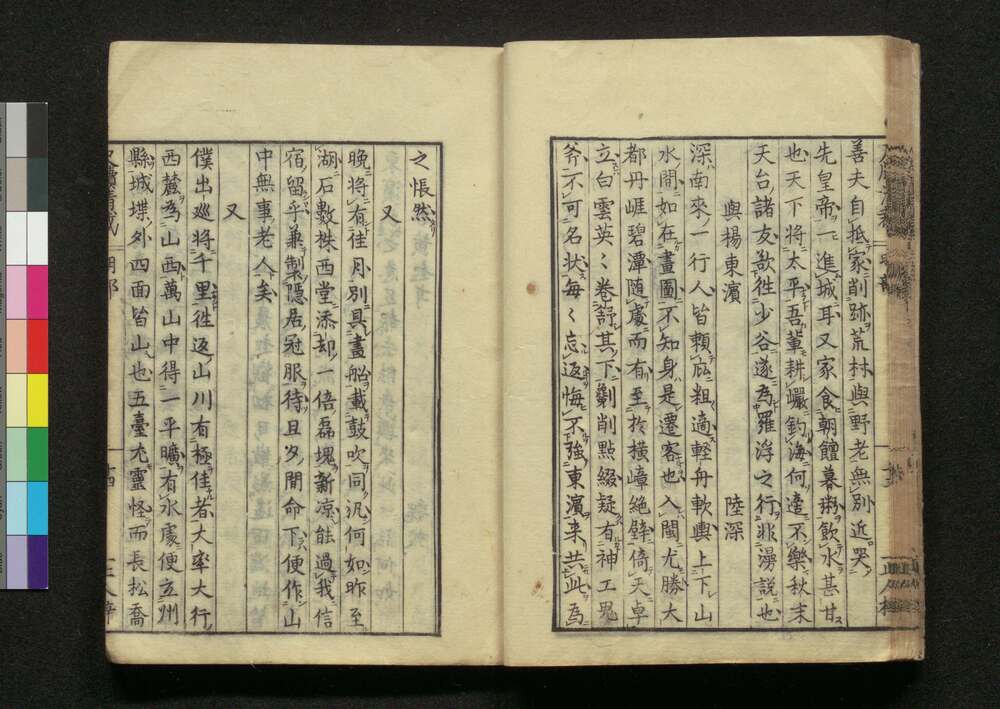 善夫自抵家削跡荒林與野老無別近哭
先皇帝一進城耳又家食朝饘暮粥飲水甚甘
也天下將太平吾輩耕巖釣海何遽不樂秋末
天台諸友欲徃少谷遂為羅浮之行非漫説也
與楊東濱 陸深
深南來一行人皆頼庇粗適輕舟軟輿上下山
水間如在畫圖不知身是遷客也入閩尤勝大
都丹崕碧潭随處而有至扵横嶂絶壁倚天卓
立白雲英〻卷舒其下劖削點綴疑有神工鬼
斧不可名状毎〻忘返悔不強東濱来共此為
之悵然
又
晚將有佳月別具畫船載鼓吹同汎何如昨至
湖石數株西堂添却一倍磊塊新凉能過我信
宿留乎兼製隠居冠服待且夕閒命下便作山
中無事老人矣
又
僕出廵將千里徃返山川有極佳者大率大行
西麓為山西萬山中得一平曠有水處便立州
縣城堞外四面皆山也五臺尤靈怪而長松喬